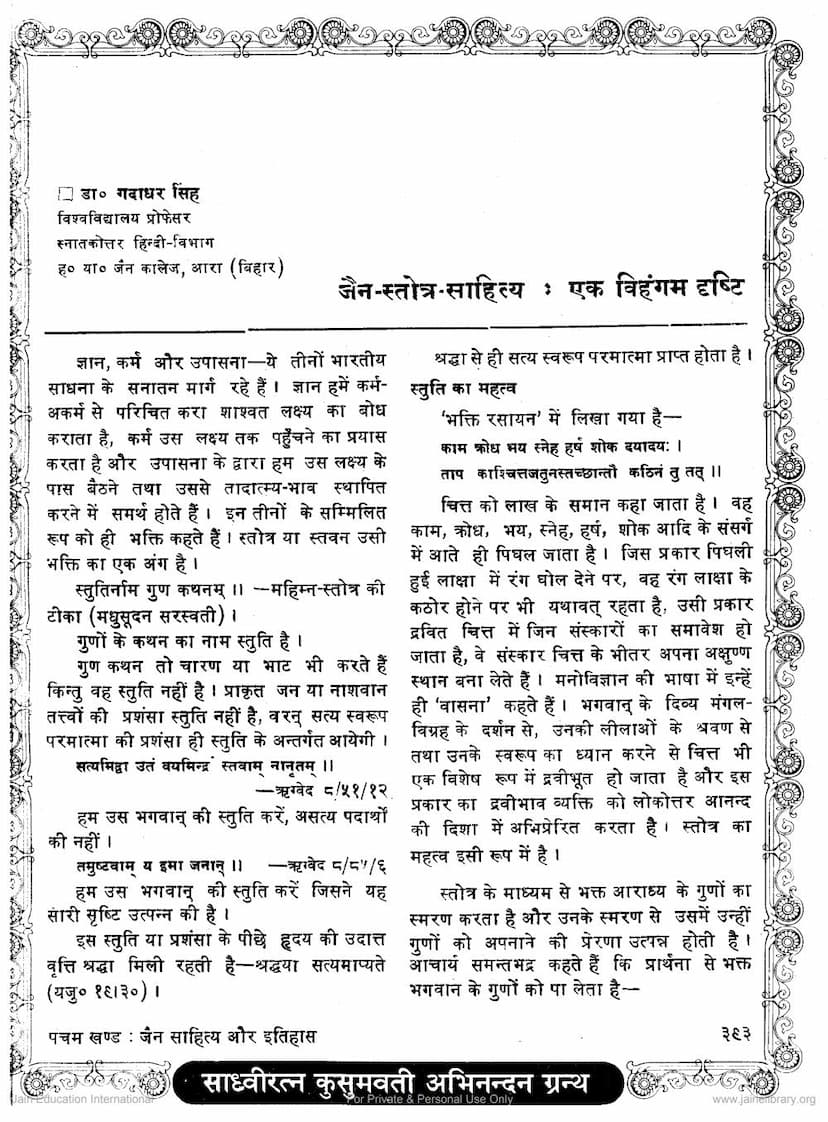 डा० गदाधर सिंह
विश्वविद्यालय प्रोफेसर
स्नातकोत्तर हिन्दी-विभाग
ह० या० जैन कालेज, आरा (बिहार)
जैन-स्तोत्र-साहित्य : एक विहंगम दृष्टि
ज्ञान, कर्म और उपासना—ये तीनों भारतीय
साधना के सनातन मार्ग रहे हैं । ज्ञान हमें कर्म-
अकर्म से परिचित करा शाश्वत लक्ष्य का बोध
कराता है, कर्म उस लक्ष्य तक पहुँचने का प्रयास
करता है और उपासना के द्वारा हम उस लक्ष्य के
पास बैठने तथा उससे तादात्म्य-भाव स्थापित
करने में समर्थ होते हैं । इन तीनों के सम्मिलित
रूप को ही भक्ति कहते हैं । स्तोत्र या स्तवन उसी
भक्ति का एक अंग है ।
स्तुतिर्नाम गुण कथनम् ।। —महिम्न-स्तोत्र की
टीका (मधुसूदन सरस्वती) ।
गुणों के कथन का नाम स्तुति है ।
गुण कथन तो चारण या भाट भी करते हैं
किन्तु वह स्तुति नहीं है । प्राकृत जन या नाशवान
तत्त्वों की प्रशंसा स्तुति नहीं है, वरन् सत्य स्वरूप
परमात्मा की प्रशंसा ही स्तुति के अन्तर्गत आयेगी ।
सत्यमिद्वा उतं वयमिन्द्रं स्तवाम् नानृतम् ।।
—ऋग्वेद ८/५१/१२
हम उस भगवान् की स्तुति करें, असत्य पदार्थों
की नहीं ।
तमुष्टवाम् य इमा जनान् ।। —ऋग्वेद ८/८५/६
हम उस भगवान् की स्तुति करें जिसने यह
सारी सृष्टि उत्पन्न की है ।
इस स्तुति या प्रशंसा के पीछे हृदय की उदात्त
वृत्ति श्रद्धा मिली रहती है—श्रद्धया सत्यमाप्यते
(यजु० १९।३०) ।
श्रद्धा से ही सत्य स्वरूप परमात्मा प्राप्त होता है ।
स्तुति का महत्व
‘भक्ति रसायन’ में लिखा गया है—
काम क्रोध भय स्नेह हर्ष शोक दयादयः ।
ताप काश्चित्तजतुनस्तच्छान्तौ कठिनं तु तत् ।।
चित्त को लाख के समान कहा जाता है । वह
काम, क्रोध, भय, स्नेह, हर्ष, शोक आदि के संसर्ग
में आते ही पिघल जाता है । जिस प्रकार पिघली
हुई लाक्षा में रंग घोल देने पर, वह रंग लाक्षा के
कठोर होने पर भी यथावत् रहता है, उसी प्रकार
द्रवित चित्त में जिन संस्कारों का समावेश हो
जाता है, वे संस्कार चित्त के भीतर अपना अक्षुण्ण
स्थान बना लेते हैं । मनोविज्ञान की भाषा में इन्हें
ही ‘वासना’ कहते हैं । भगवान् के दिव्य मंगल-
विग्रह के दर्शन से, उनकी लीलाओं के श्रवण से
तथा उनके स्वरूप का ध्यान करने से चित्त भी
एक विशेष रूप में द्रवीभूत हो जाता है और इस
प्रकार का द्रवीभाव व्यक्ति को लोकोत्तर आनन्द
की दिशा में अभिप्रेरित करता है । स्तोत्र का
महत्व इसी रूप में है ।
स्तोत्र के माध्यम से भक्त आराध्य के गुणों का
स्मरण करता है और उनके स्मरण से उसमें उन्हीं
गुणों को अपनाने की प्रेरणा उत्पन्न होती है ।
आचार्य समन्तभद्र कहते हैं कि प्रार्थना से भक्त
भगवान के गुणों को पा लेता है—
पंचम खण्ड : जैन साहित्य और इतिहास
३९३
साध्वीरत्न कुसुमवती अभिनन्दन ग्रन्थ
Jain Education International
For Private & Personal Use Only
www.jainelibrary.org